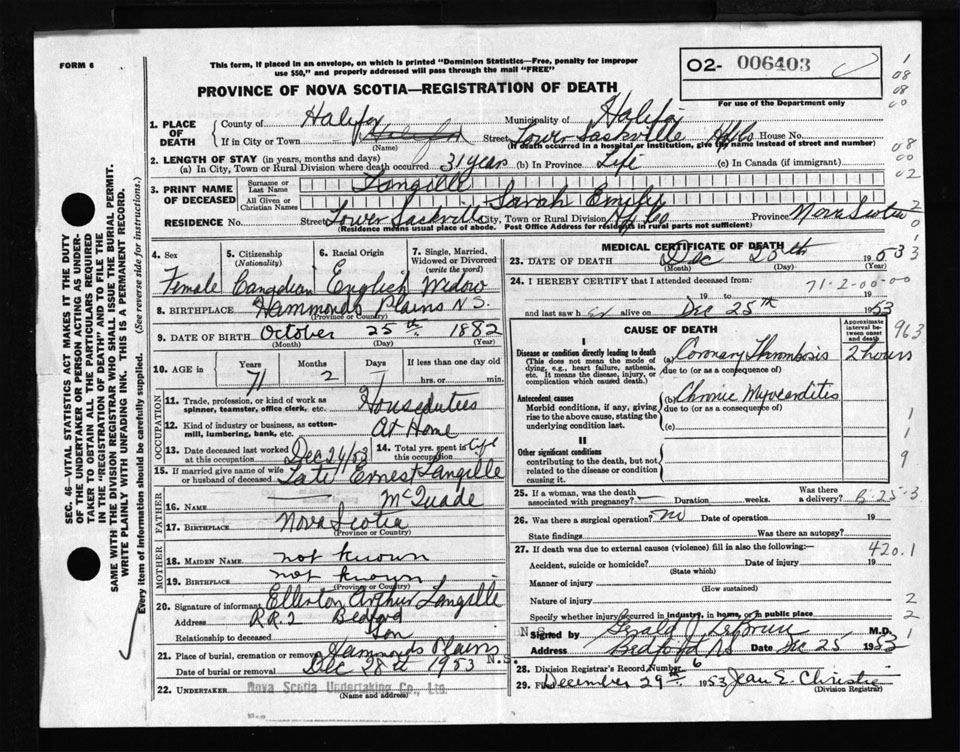 FORM 6
This form, if placed in an envelope, on which is printed "Dominion Statistics—Free, penalty for improper
use $50," and properly addressed will pass through the mail "FREE"
02- 006403
For use of the Department only
PROVINCE OF NOVA SCOTIA—REGISTRATION OF DEATH
1. PLACE OF DEATH
County of Halifax Municipality of Halifax
If in City or Town (Name) Street Lower Sackville House No.
(If death occurred in a hospital or institution, give the name instead of street and number)
2. LENGTH OF STAY (in years, months and days)
(a) In City, Town or Rural Division where death occurred 31 years (b) In Province Life (c) In Canada (if immigrant)
3. PRINT NAME OF DECEASED
Surname or Last Name Langille
All Given or Christian Names Sarah Emily
RESIDENCE No. Street Lower Sackville City, Town or Rural Division Hfx Co Province Nova Scotia
(Residence means usual place of abode. Post Office Address for residents in rural parts not sufficient)
4. Sex Female
5. Citizenship (Nationality) Canadian
6. Racial Origin English
7. Single, Married, Widowed or Divorced (write the word) Widow
8. BIRTHPLACE Hammonds Plains N.S.
(Province or Country)
9. DATE OF BIRTH October 25th 1882
(Month) (Day) (Year)
10. AGE in Years 71 Months 2 Days If less than one day old hrs. or min.
OCCUPATION
11. Trade, profession, or kind of work as spinner, teamster, office clerk, etc. Houseduties
12. Kind of industry or business, as cotton-mill, lumbering, bank, etc. At Home
13. Date deceased last worked at this occupation Dec 24/53
14. Total yrs. spent in this occupation Life
15. If married give name of wife or husband of deceased Late Ernest Langille
FATHER
16. NAME McQuade
17. BIRTHPLACE Nova Scotia
(Province or Country)
MOTHER
18. MAIDEN NAME not known
19. BIRTHPLACE not known
(Province or Country)
20. Signature of informant Ellerton Arthur Langille
Address R.R.2 Bedford
Relationship to deceased Son
21. Place of burial, cremation or removal Hammonds Plains N.S.
Date of burial or removal Dec 28th 1953
22. UNDERTAKER Nova Scotia Undertaking Co., Ltd.
(Name and address)
MEDICAL CERTIFICATE OF DEATH
23. DATE OF DEATH Dec 25th 1953
(Month) (Day) (Year)
24. I HEREBY CERTIFY that I attended deceased from:
71-2-00-00
19 to 19
and last saw h er alive on Dec 25th 1953
CAUSE OF DEATH
Approximate interval between onset and death
I
Disease or condition directly leading to death
(This does not mean the mode of dying, e.g., heart failure, asthenia, etc. It means the disease, injury, or complication which caused death.)
(a) Coronary Thrombosis 2 hours
due to (or as a consequence of)
Antecedent causes
Morbid conditions, if any, giving rise to the above cause, stating the underlying condition last.
(b) Chronic Myocarditis
due to (or as a consequence of)
(c)
II
Other significant conditions
contributing to the death, but not related to the disease or condition causing it.
25. If a woman, was the death associated with pregnancy? Duration weeks. Was there a delivery?
26. Was there a surgical operation? no Date of operation 19
State findings Was there an autopsy?
27. If death was due to external causes (violence) fill in also the following:—
420.1
Accident, suicide or homicide? Date of injury 19
(State which)
Manner of injury
(How sustained)
Nature of injury
Specify whether injury occurred in industry, in home, or in public place
Signed by M.D.
Address Bedford NS Date Dec 25 1953
28. Division Registrar's Record Number 6
29. Filed December 29th 1953 Jean E. Christie
(Division Registrar)
SEC. 46—VITAL STATISTICS ACT MAKES IT THE DUTY
OF THE UNDERTAKER OR PERSON ACTING AS UNDER-
TAKER TO OBTAIN ALL THE PARTICULARS REQUIRED
IN THE "REGISTRATION OF DEATH" AND TO FILE THE
SAME WITH THE DIVISION REGISTRAR WHO SHALL ISSUE THE BURIAL PERMIT.
WRITE PLAINLY WITH UNFADING INK. THIS IS A PERMANENT RECORD.
Every item of information should be carefully supplied. (See reverse side for instructions.)